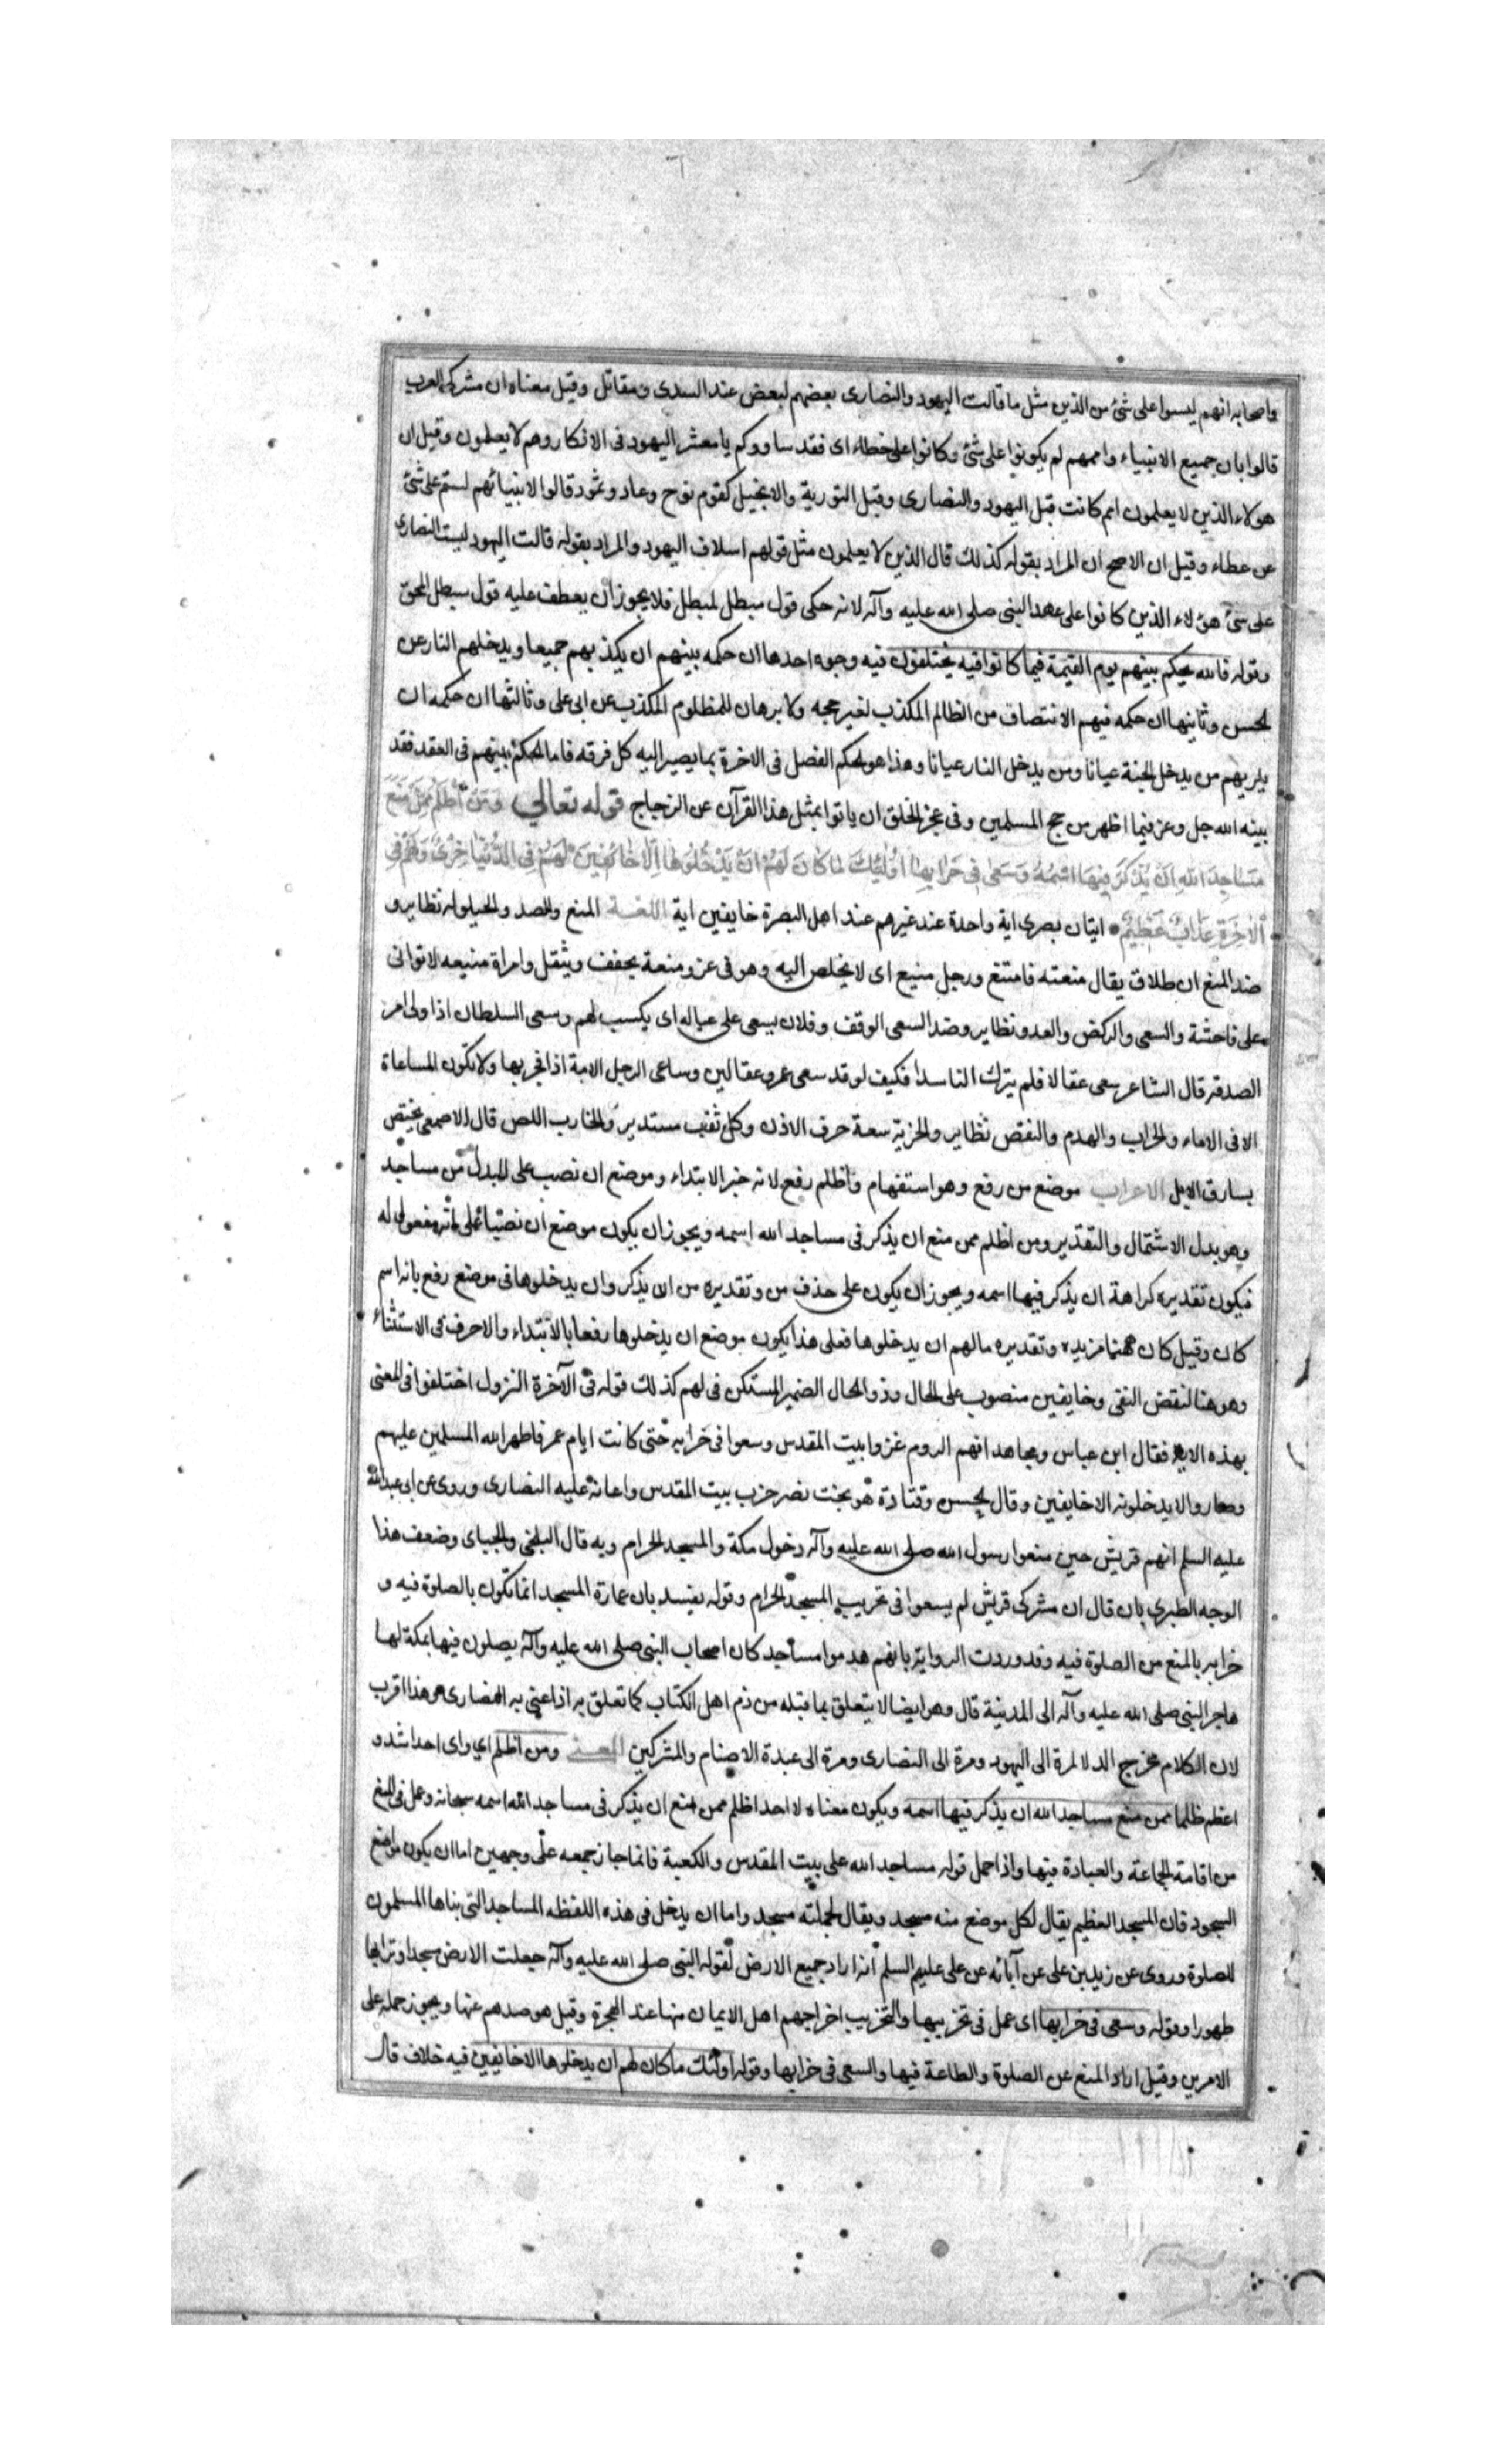 واصحابه انهم ليسوا على شئ من الذين مثل ما قالت اليهود والنصارى بعضهم لبعض عند السدى ومقاتل وقيل معناه ان مشركى العرب
قالوا بان جميع الانبياء واممهم لم يكونوا على شئ وكانوا على خطاء اى فقد ساووكم يا معشر اليهود فى الانكار وهم لا يعلمون وقيل ان
هولاء الذين لا يعلمون امم كانت قبل اليهود والنصارى وقبل التورية والانجيل كقوم نوح وعاد وثمود قالوا لانبيائهم لستم على شئ
عن عطاء وقيل ان الاصح ان المراد بقوله كذلك قال الذين لا يعلمون مثل قولهم اسلاف اليهود والمراد بقوله قالت اليهود ليست النصارى
على شئ هؤلاء الذين كانوا على عهد النبى صلى الله عليه وآله لانه حكى قول مبطل لمبطل فلا يجوز ان يعطف عليه قول مبطل لمحق
وقوله فالله يحكم بينهم يوم القيمة فيما كانوا فيه يختلفون فيه وجوه احدها ان حكمه بينهم ان يكذبهم جميعا ويدخلهم النار عن
الحسن وثانيها ان حكمه فيهم الانتصاف من الظالم المكذب لغير حجه ولا برهان للمظلوم المكذب عن ابى على وثالثها ان حكمه ان
يلريهم من يدخل الجنة عيانا ومن يدخل النار عيانا وهذا هو الحكم الفصل فى الاخرة بما يصير اليه كل فرقه فاما الحكم بينهم فى العقد فقد
بينه الله جل وعز فيما اظهر من حجج المسلمين وفى عجز الخلق ان ياتوا بمثل هذا القرآن عن الزجاج قوله تعالى وَمَنْ أَظْلَمُ مِمَّنْ مَنَعَ
مَسَاجِدَ اللهِ اَنْ يُذْكَرَ فِيهَا اسْمُهُ وَسَعَى فِى خَرَابِهَا اُولٰئِكَ مَا كَانَ لَهُمْ اَنْ يَدْخُلُوهَا اِلَّا خَائِفِينَ لَهُمْ فِى الدُّنْيَا خِزْىٌ وَلَهُمْ فِى
الْاٰخِرَةِ عَذَابٌ عَظِيمٌ ايتان بصرى اية واحدة عند غيرهم عند اهل البصرة خايفين اية اللغة المنع والصد والحيلوله نظاير و
ضد المنع ان طلاق يقال منعته فامتنع ورجل منيع اى لا يخلص اليه وهو فى عز ومنعة يخفف ويثقل وامراة منيعه لا تواتى
على فاحشة والسعى والركض والعدو نظاير وضد السعى الوقف وفلان يسعى على عياله اى يكسب لهم وسعى السلطان اذا ولى امر
الصدقه قال الشاعر سعى عقالا فلم يترك لنا سبدا فكيف لو قد سعى عمرو عقالين وساعى الرجل الامة اذا فجر بها ولا تكون المساعاة
الا فى الاماء والخراب والهدم والنقض نظاير والخربة سعة خرق الاذن وكل ثقب مستدير والخارب اللص قال الاصمعى يختص
بسارق الابل الاعراب موضع من رفع وهو استفهام واظلم رفع لانه خبر الابتداء وموضع ان نصب على البدل من مساجد
وهو بدل الاشتمال والتقدير ومن اظلم ممن منع ان يذكر فى مساجد الله اسمه ويجوز ان يكون موضع ان نصبا على انه مفعول له
فيكون تقديره كراهة ان يذكر فيها اسمه ويجوز ان يكون على حذف من وتقديره من ان يذكر وان يدخلوها فى موضع رفع بانه اسم
كان وقيل كان ههنا مزيده وتقديره مالهم ان يدخلوها فعلى هذا يكون موضع ان يدخلوها رفعا بالابتداء والاحرف فى الاستثناء
وهو هنا لنقض النفى وخايفين منصوب على الحال وذو الحال الضمير المستكن فى لهم كذلك قوله فى الآخرة النزول اختلفوا فى المعنى
بهذه الايه فقال ابن عباس ومجاهد انهم الروم غزوا بيت المقدس وسعوا فى خرابه حتى كانت ايام عمر فاظهر الله المسلمين عليهم
وصاروا لا يدخلونه الا خايفين وقال الحسن وقتادة هو بخت نصر خرب بيت المقدس واعانه عليه النصارى وروى عن ابى عبد الله
عليه السلم انهم قريش حين منعوا رسول الله صلى الله عليه وآله دخول مكة والمسجد الحرام وبه قال البلخى والجبائى وضعف هذا
الوجه الطبرى بان قال ان مشركى قريش لم يسعوا فى تخريب المسجد الحرام وقوله يفسد بان عمارة المسجد انما تكون بالصلوة فيه و
خرابه بالمنع من الصلوة فيه وقد وردت الرواية بانهم هدموا مساجد كان اصحاب النبى صلى الله عليه وآله يصلون فيها بمكة لما
هاجر النبى صلى الله عليه وآله الى المدينة قال وهو ايضا لا يتعلق بما قبله من ذم اهل الكتاب كما تعلق به اذا عنى به النصارى وهذا اقرب
لان الكلام مخرج الد لا لمرة الى اليهود ومرة الى النصارى ومرة الى عبدة الاصنام والمشركين المعنى ومن اظلم اى واى احد اشد و
اعظم ظلما ممن منع مساجد الله ان يذكر فيها اسمه ويكون معناه لا احد اظلم ممن منع ان يذكر فى مساجد الله اسمه سبحانه وعمل فى المنع
من اقامة الجماعة والعبادة فيها واذا حمل قوله مساجد الله على بيت المقدس والكعبة فانما جاز جمعه على وجهين اما ان يكون مواضع
السجود فان المسجد العظيم يقال لكل موضع منه مسجد ويقال لجملته مسجد واما ان يدخل فى هذه اللفظه المساجد التى بناها المسلمون
للصلوة وروى عن زيد بن على عن آبائه عن على عليهم السلم انه اراد جميع الارض لقوله النبى صلى الله عليه وآله جعلت الارض مسجدا وترابها
طهورا وقوله وسعى فى خرابها اى عمل فى تخريبها والتخريب اخراجهم اهل الايمان منها عند الهجرة وقيل هو صدهم عنها ويجوز حمله على
الامرين وقيل اراد المنع عن الصلوة والطاعة فيها والسعى فى خرابها وقوله اولئك ما كان لهم ان يدخلوها الا خايفين فيه خلاف قال